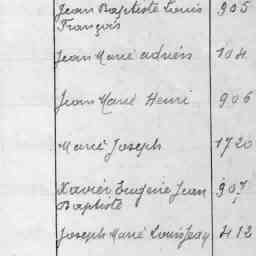 Jean Baptiste Louis 905
François
Jean Marie adrien 104
Jean Marie Henri 906
Marie Joseph 1720
Xavier Eugène Jean 907
Baptiste
Joseph Marie Louis Jean 412